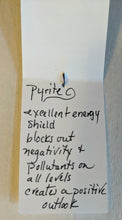 Pyrite
excellent energy
shield
blocks out
negativity &
pollutants on
all levels
creates a positive
outlook